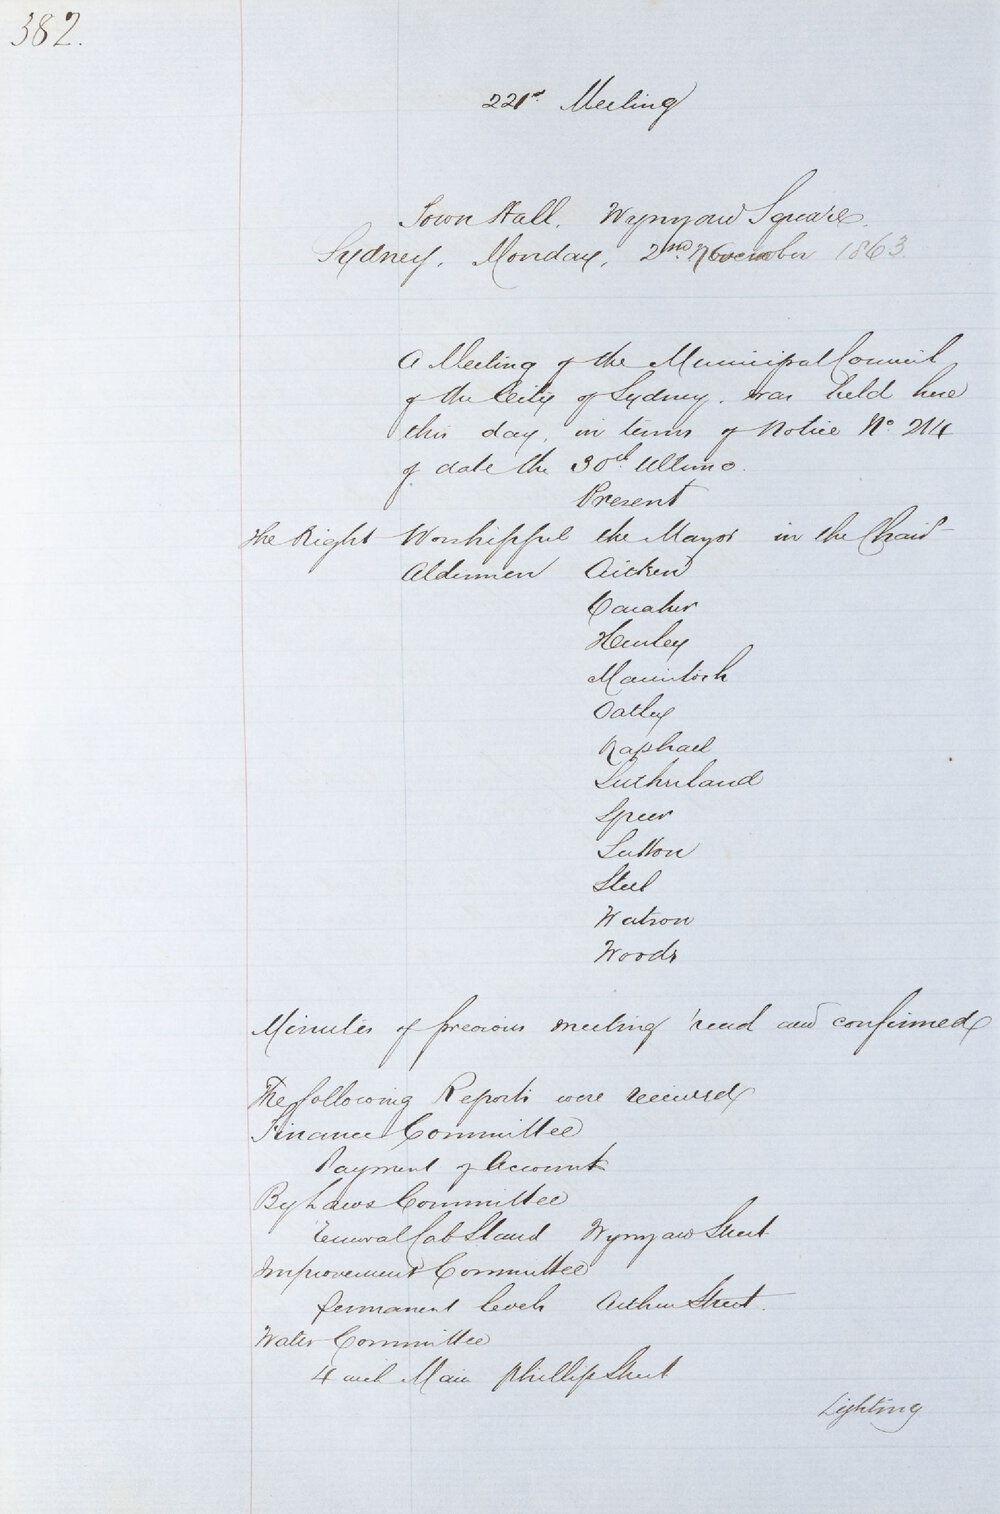 382.
221st Meeting
Town Hall, Wynyard Square,
Sydney, Monday, 2nd November 1863.
A Meeting of the Municipal Council
of the City of Sydney, was held here
this day, in terms of Notice No. 214
of date the 30th Ultimo.
Present
The Right Worshipful the Mayor in the Chair
Aldermen Aitken
Caraher
Hurley
Macintosh
Oatley
Raphael
Sutherland
Speer
Sutton
Steel
Watson
Woods
Minutes of previous meeting read and confirmed
The following Reports were received
Finance Committee
Payment of Accounts
By Laws Committee
removal Cab Stand Wynyard Street
Improvement Committee
permanent levels Arthur Street.
Water Committee
4 inch Main Phillip Street
Lighting